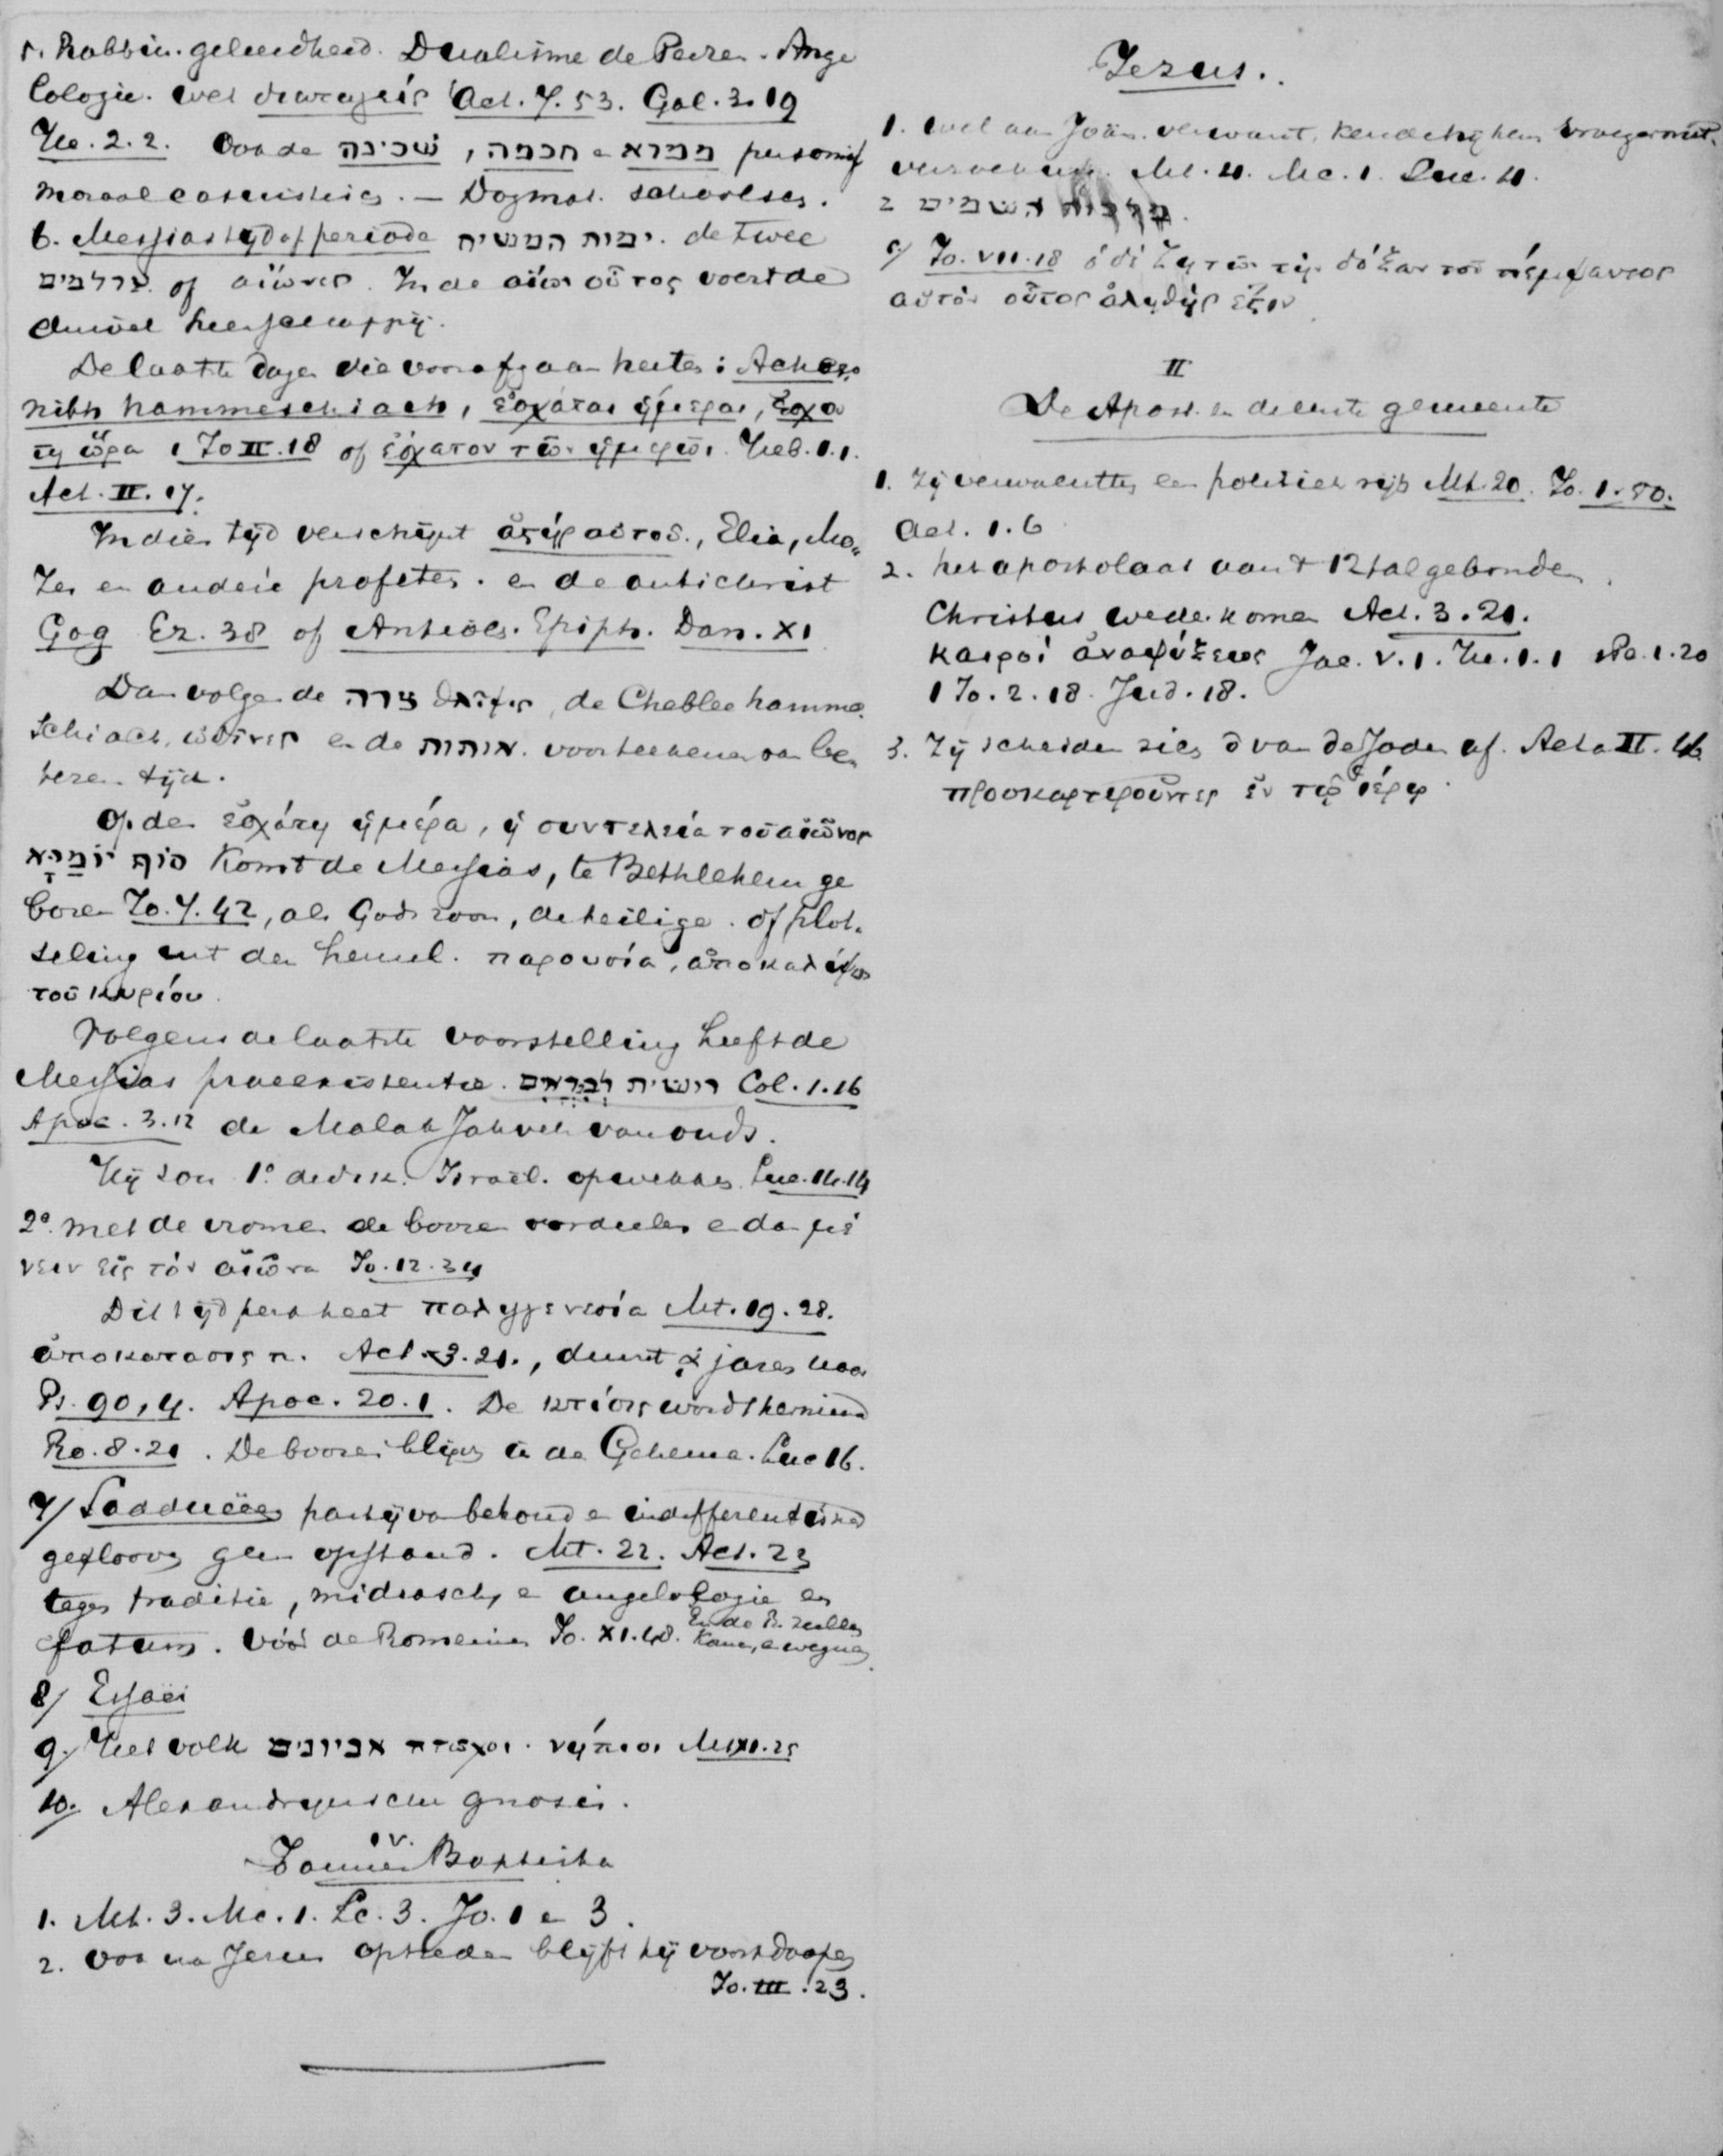 5. Rabbin. geleerdheid. Dualisme de Perzen. Ange
lologie. wet διαταγείς Act. 7. 53. Gal. 3. 19
He. 2. 2. Ook de שכינה, חכמה e ממרא personif
moraal casuistics. — Dogmat. scholses.
6. Messiastijd of periode ימות המשיח. de twee
עולמים of αἰῶνες. In de αἰὼν οὗτος voert de
duivel heerschappij.
De laatste dagen die voorafgaan heeten: Acha-
rith hammeschiach, ἔσχαται ἡμέραι, ἐσχά
τη ὥρα 1 Jo II. 18 of ἔσχατον τῶν ἡμερῶν. Heb. 1. 1.
Act. II. 17.
In dien tijd verschijnt ἀστὴρ αὐτοῦ., Elia, Mo-
zes en andere profeten. en de antichrist
Gog Ez. 38 of Antioch. Epiph. Dan. XI
Dan volgen de צרה θλῖψις, de Cheblee hamme-
schiach, ὠδῖνες en de אותות. voorteekenen van be-
teren tijd.
Op den ἐσχάτῃ ἡμέρᾳ, ἡ συντελεία τοῦ αἰῶνος
סוף יומיא Komt de Messias, te Bethlehem ge
boren Jo. 7. 42, als Gods zoon, de heilige. of plot-
seling uit den hemel. παρουσία, ἀποκαλύψις
τοῦ κυρίου.
Volgens de laatste voorstelling heeft de
Messias praeexistentie. Col. 1. 16
Apoc. 3. 12 de Malak Jahveh van ouds.
Hij zou 1º. de Israël. opwekken Luc. 14. 14
2º. met de vromen de boozen oordeelen e dan μέ
νειν εἰς τὸν αἰῶνα Jo. 12. 34
Dit tijdperk heet παλιγγενεσία Mt. 19. 28.
ἀποκαταστασις π. Act. 3. 21., duurt jaren naar
Ps. 90, 4. Apoc. 20. 1. De κτίσις wordt hernieuwd
Ro. 8. 21. De boozen blijven in de Gehenna. Luc 16.
7/ Sadduceën partij van behoud e indifferentisme
gelooven geen opstand. Mt. 22. Act. 23
tegen traditie, midrasch, e angelologie en
fatum. Vóór de Romeinen Jo. XI. 48. En de R. zullen
komen, e wegnemen
8/ Essaëi
9. Het volk אביונים. νήπιοι Mt XI. 25
10. Alexandrijnsche gnosis.
IV.
Joannes Baptista
1. Mt. 3. Mc. 1. Lc. 3. Jo. 1 e 3.
2. Voor na Jezus optreden blijft hij voortdoopen
Jo. III. 23.
Jezus.
1. wel aan Joän. verwant, kende hij hem vroeger niet.
verzoeking. Mt. 4. Mc. 1. Luc. 4.
2 מלכות השמים.
c/ Jo. VII. 18 ὁ δὲ ζητῶν τὴν δόξαν τοῦ πέμψαντος
αὐτὸν οὗτος ἀληθής ἐστιν
II
De Apost. en de eerste gemeente
1. Zij verwachtten een politiek rijk Mt. 20. Jo. 1. 50.
Act. 1. 6
2. het apostolaat aan 't 12tal gebonden.
Christus wederkomen Act. 3. 21.
καιροὶ ἀναψύξεως Jac. V. 1. He. 1. 1 1 Pe. 1. 20
1 Jo. 2. 18. Jud. 18.
3. Zij scheiden zich van de Joden af. Acta II. 46
προσκαρτεροῦντες ἐν τῷ ἱέρῳ.